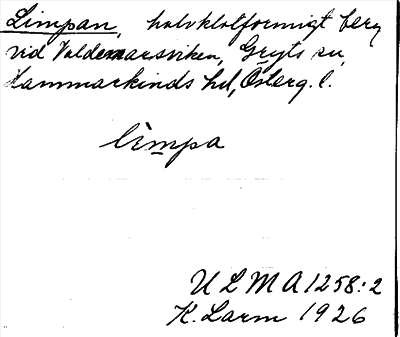 Limpan, halvklotformigt berg
vid Valdemarsviken, Gryts sn,
Hammarkinds hd, Österg. l.
lìmpa
ULMA 1258:2
K. Larm 1926